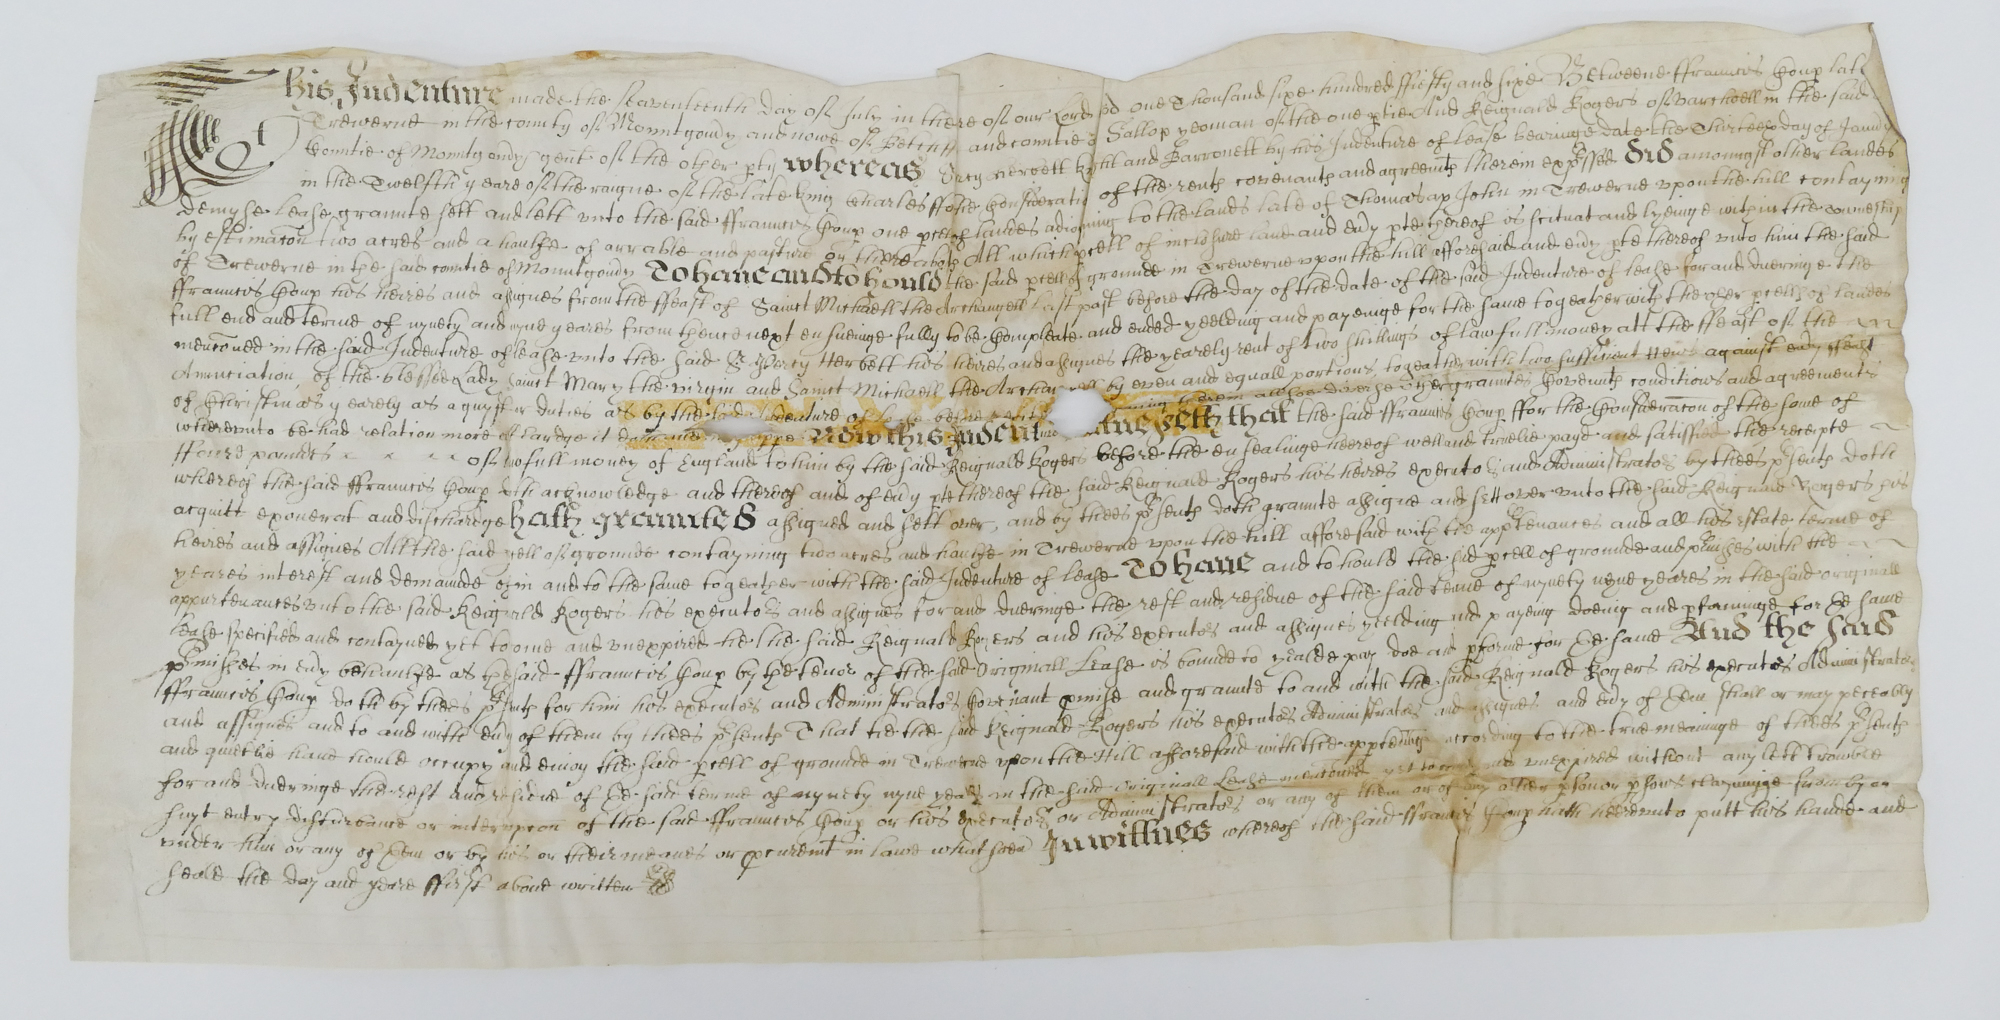 This Indenture made the seaventeenth day of July in the of our Lord one Thousand sixe hundred ffiefty and sixe Betweene ffrauncis Houp late
Trewerne in the countie of Mountgomry and nowe of and countie Sallop yeoman of the one ptie And Reignald Rogers of in the said
Countie of Mountgomry gent of the other pty whereas Percy Herbett Knight and Barronett by his Indenture of lease bearinge date the day of
in the Twelfth yeare of the raigne of the late King Charles ffor the Consideratio of the rents covenants and agreemts therein expssed did amongst other landes
demyse lease graunte sett and lett unto the said ffrauncis Houp one pcell of landes adioyning to the lands late of Thomas ap John in Trewerne upon the hill contayning
by estimacon two acres and a haulfe of arrable and pasture or thereabouts All which pcell of inclosure land and evy pte thereof is scituat and lyeinge within the
of Trewerne in the said comtie of Mountgomry To have and to hould the said pcell of grounde in Trewerne upon the hill afforesaid and evy pte thereof unto him the said
ffrauncis Houp his heires and assignes from the ffeast of Sainct Michaell the Archangell last past before the day of the date of the said Indenture of lease for and dueringe the
full end and terme of nynety and nyne yeares from thence next ensueinge fully to be compleate and ended yeelding and payeinge for the same togeather with the other pcells of landes
mencioned in the said Indenture of lease unto the said Sr Percy Herbett his heires and assignes the yearely rent of two shillings of lawfull money att the ffeast of the
Annuciation of the blessed Lady Sainct Mary the virgin and Sainct Michaell the by even and equall portions togeather with two sufficient Hens against evy ffeast
of Christmas yearely as duties as by the said Indenture of lease other grauntes Covennts conditions and agreements
whereunto beinge had relation more att lardge it doth Now this Indenture that the said ffrauncis Houp ffor the Consideracon of the some of
ffoure pounds of lawfull money of England to him by the said Reignald Rogers before the ensealinge heereof well and truelie payd and satisfied the receipte
whereof the said ffrauncis Houp doth acknowledge and thereof and of evy pte thereof the said Reignald Rogers his heires executors and Administrators by theis psents doth
acquitt exonerat and dischardge hath graunted assigned and sett over, and by theis psents doth graunte assigne and sett over unto the said Reignald Rogers his
heires and assignes All the said pcell of grounde contayning two acres and haulfe in Trewerne upon the hill afforesaid with the apptenances and all his estate terme of
yeares interest and demaunde of in and to the same togeather with the said Indenture of lease To have and to hould the said pcell of grounde and pmisses with the
appurtenances unto the said Reignald Rogers his executors and assignes for and dueringe the rest and residue of the said terme of nynety nyne yeares in the said originall
lease specified and contayned yet to come and unexpired he the said Reignald Rogers and his executors and assignes yeelding and payeing doeing and pforminge for the same
pmisses in evy behaulfe as the said ffrauncis Houp by the tenor of the said Originall Lease is bounde to yealde pay doe and pforme for the same And the said
ffrauncis Houp doth by theis psents for him his executors and Administrators Covenant pmise and graunte to and with the said Reignald Rogers his executors Administrators
and assignes and to and with evy of them by theis psents That he the said Reignald Rogers his executors Administrators and assignes and evy of them shall or may peceably
and quietlie have hould occupy and enioy the said pcell of grounde in Trewerne upon the Hill afforesaid with the according to the true meaninge of theis psents
for and dueringe the rest and residue of the said terme of nynety nyne yeares in the said originall Lease mentioned yet to come and unexpired without any lett trouble
suyt entry disturbance or interupcon of the said ffrauncis Houp or his executors or Administrators or any of them or of any other pson or psons clayminge from by or
under him or any of them or by his or their meanes or pcuremt in lawe whatsoever In wittnes whereof the said ffrauncis Houp hath heereunto putt his hande and
seale the day and yeare ffirst above written